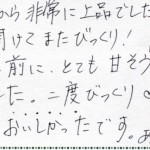 から非常に上品でした
開けてまたびっくり!
前に、とても甘そう
た。二度びっくり♡
おいしかったです。あ